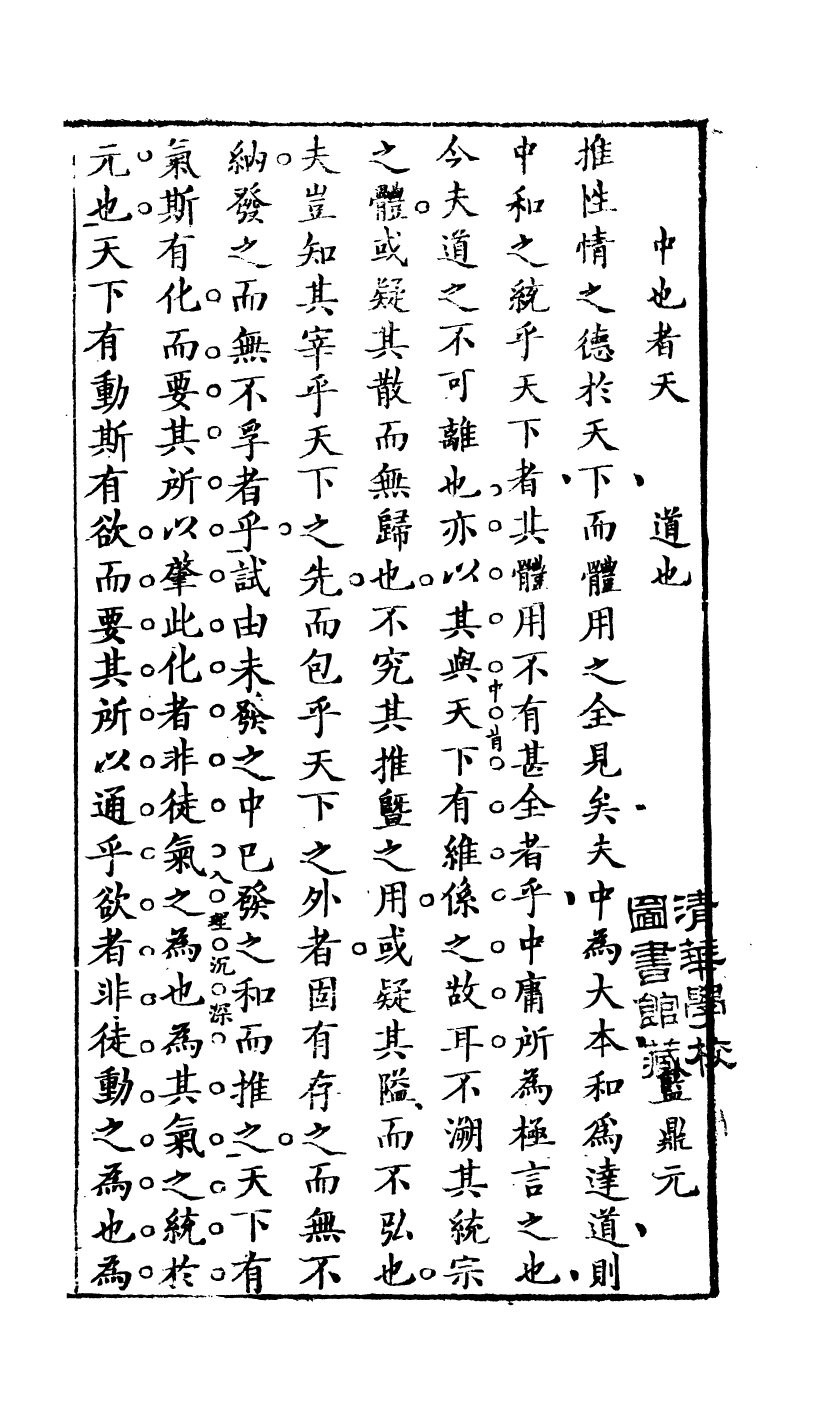 中也者天　道也　藍鼎元
清華學校
圖書館藏
推性情之德於天下而體用之全見矣夫中為大本和為達道則
中和之統乎天下者其體用不有甚全者乎中庸所為極言之也
中肯
今夫道之不可離也亦以其與天下有維係之故耳不溯其統宗
之體或疑其散而無歸也不究其推暨之用或疑其隘而不弘也
夫豈知其宰乎天下之先而包乎天下之外者固有存之而無不
納發之而無不孚者乎試由未發之中已發之和而推之天下有
入理沉深
氣斯有化而要其所以肇此化者非徒氣之為也為其氣之統於
元也天下有動斯有欲而要其所以通乎欲者非徒動之為也為